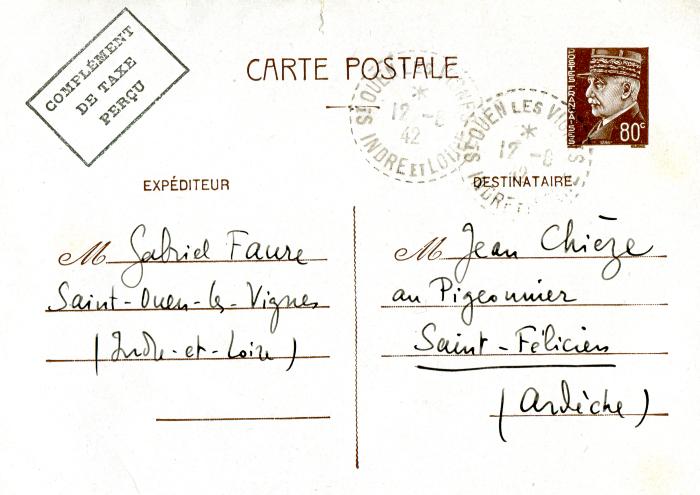 COMPLÉMENT
DE TAXE
PERÇU
CARTE POSTALE
St OUEN LES VIGNES
12 -8
42
INDRE ET LOIRE
St OUEN LES VIGNES
12 -8
42
INDRE ET
POSTES FRANÇAISES
80c
EXPÉDITEUR
M Gabriel Faure
Saint-Ouen-les-Vignes
(Indre-et-Loire)
DESTINATAIRE
M Jean Chièze
au Pigeonnier
Saint-Félicien
(Ardèche)